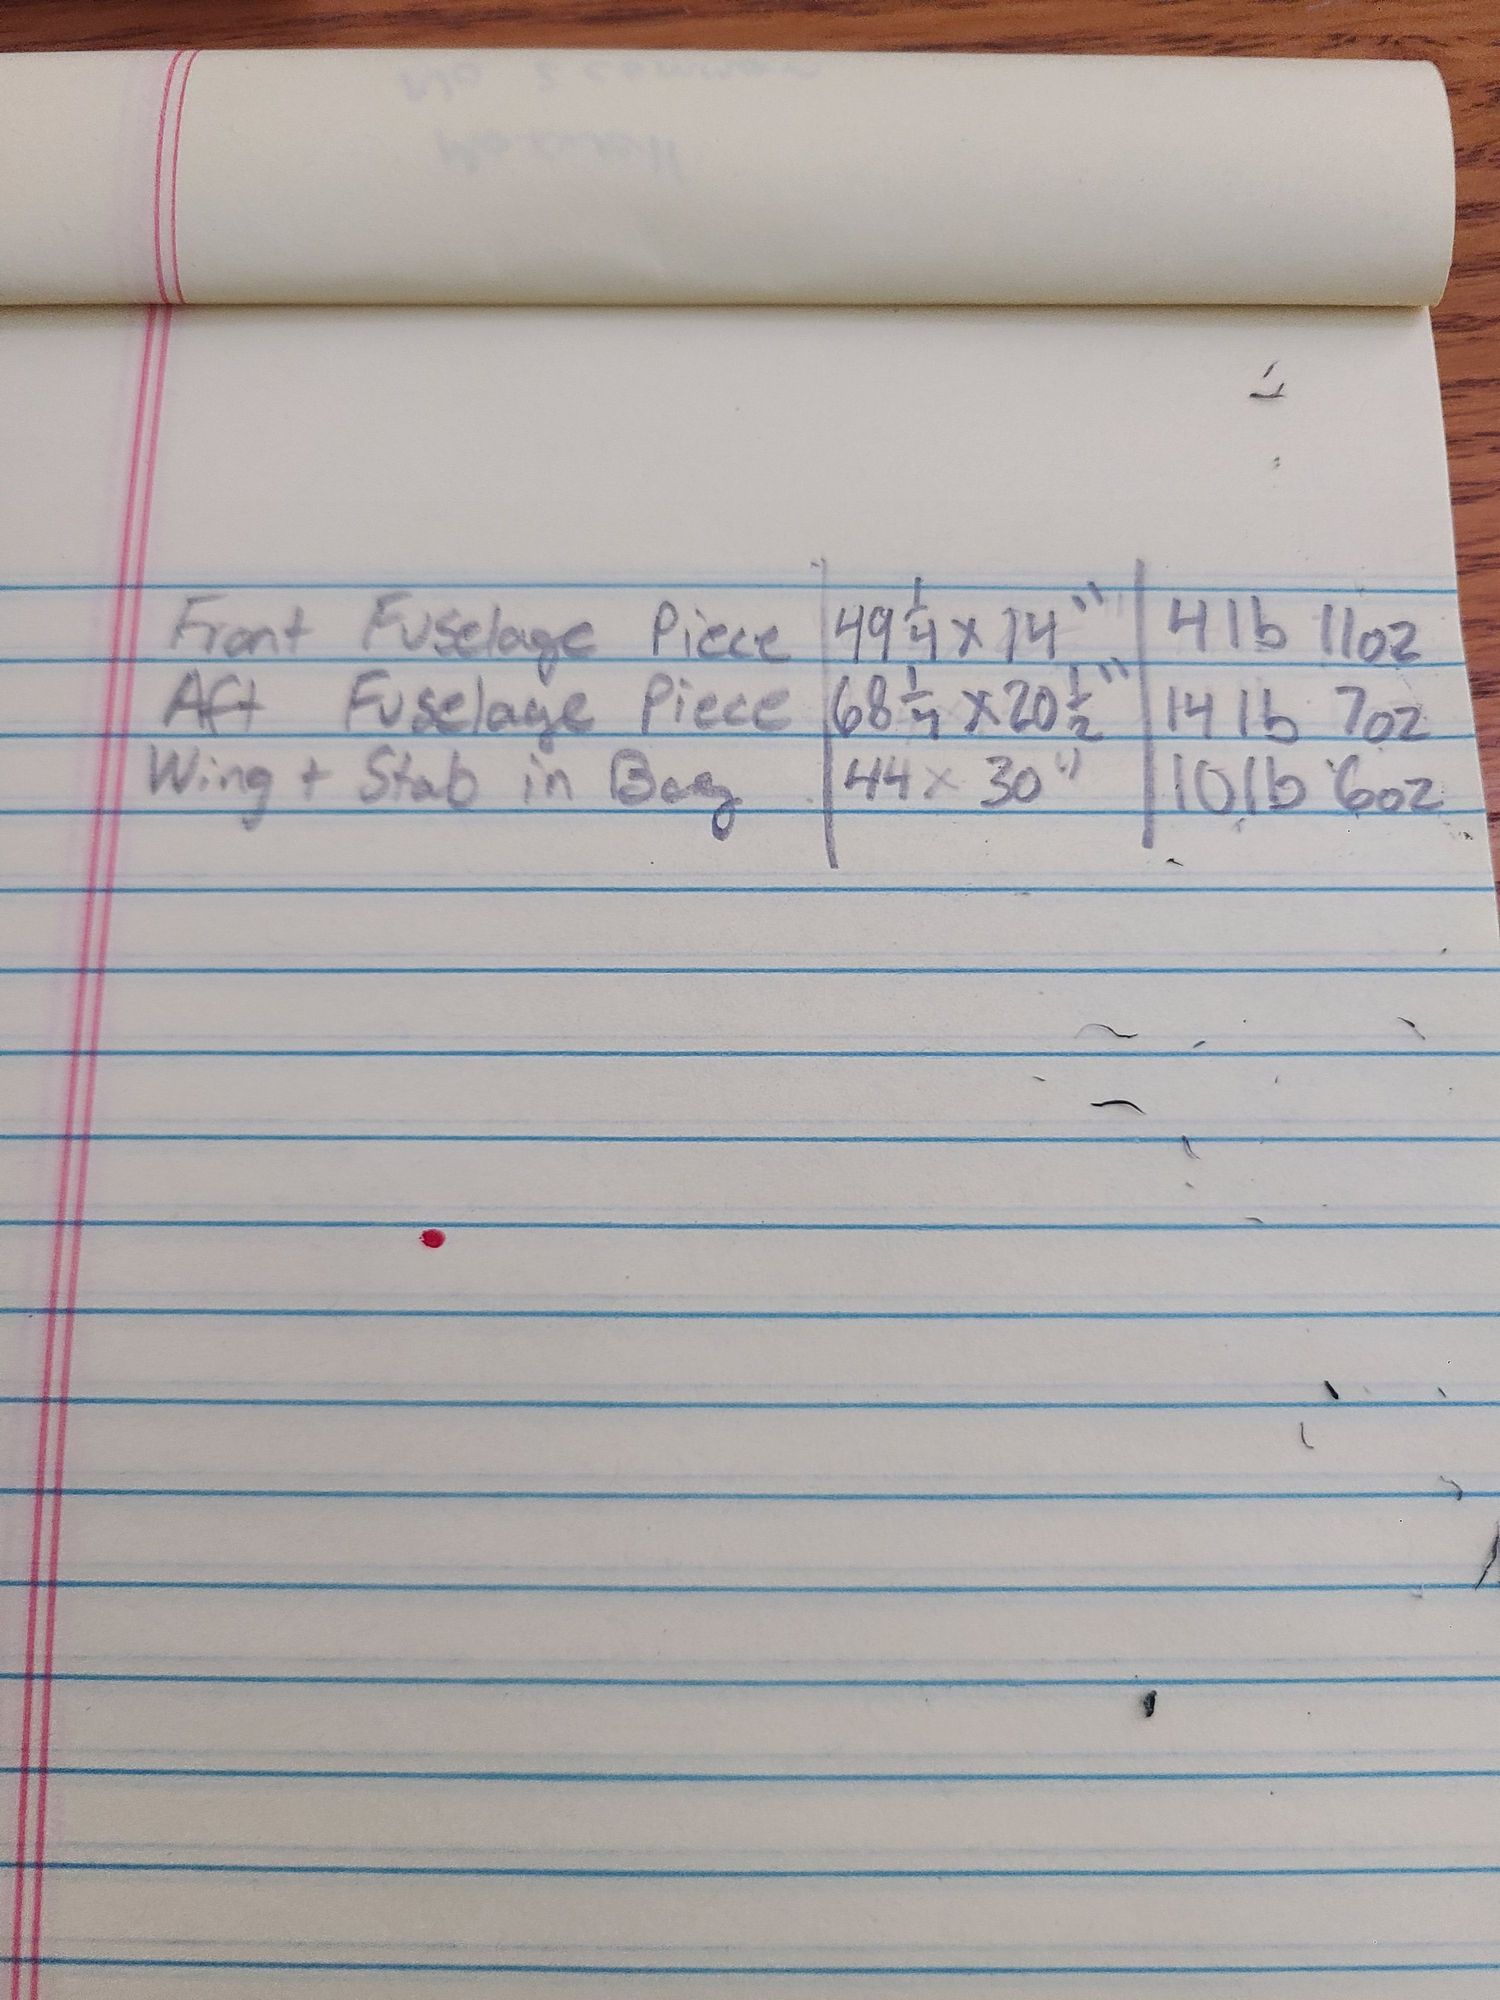 Front Fuselage Piece 49 1/4 x 14" 4 lb 11oz
Aft Fuselage Piece 68 1/4 x 20 1/2" 14 lb 7oz
Wing + Stab in Bag 44 x 30" 10 lb 6oz